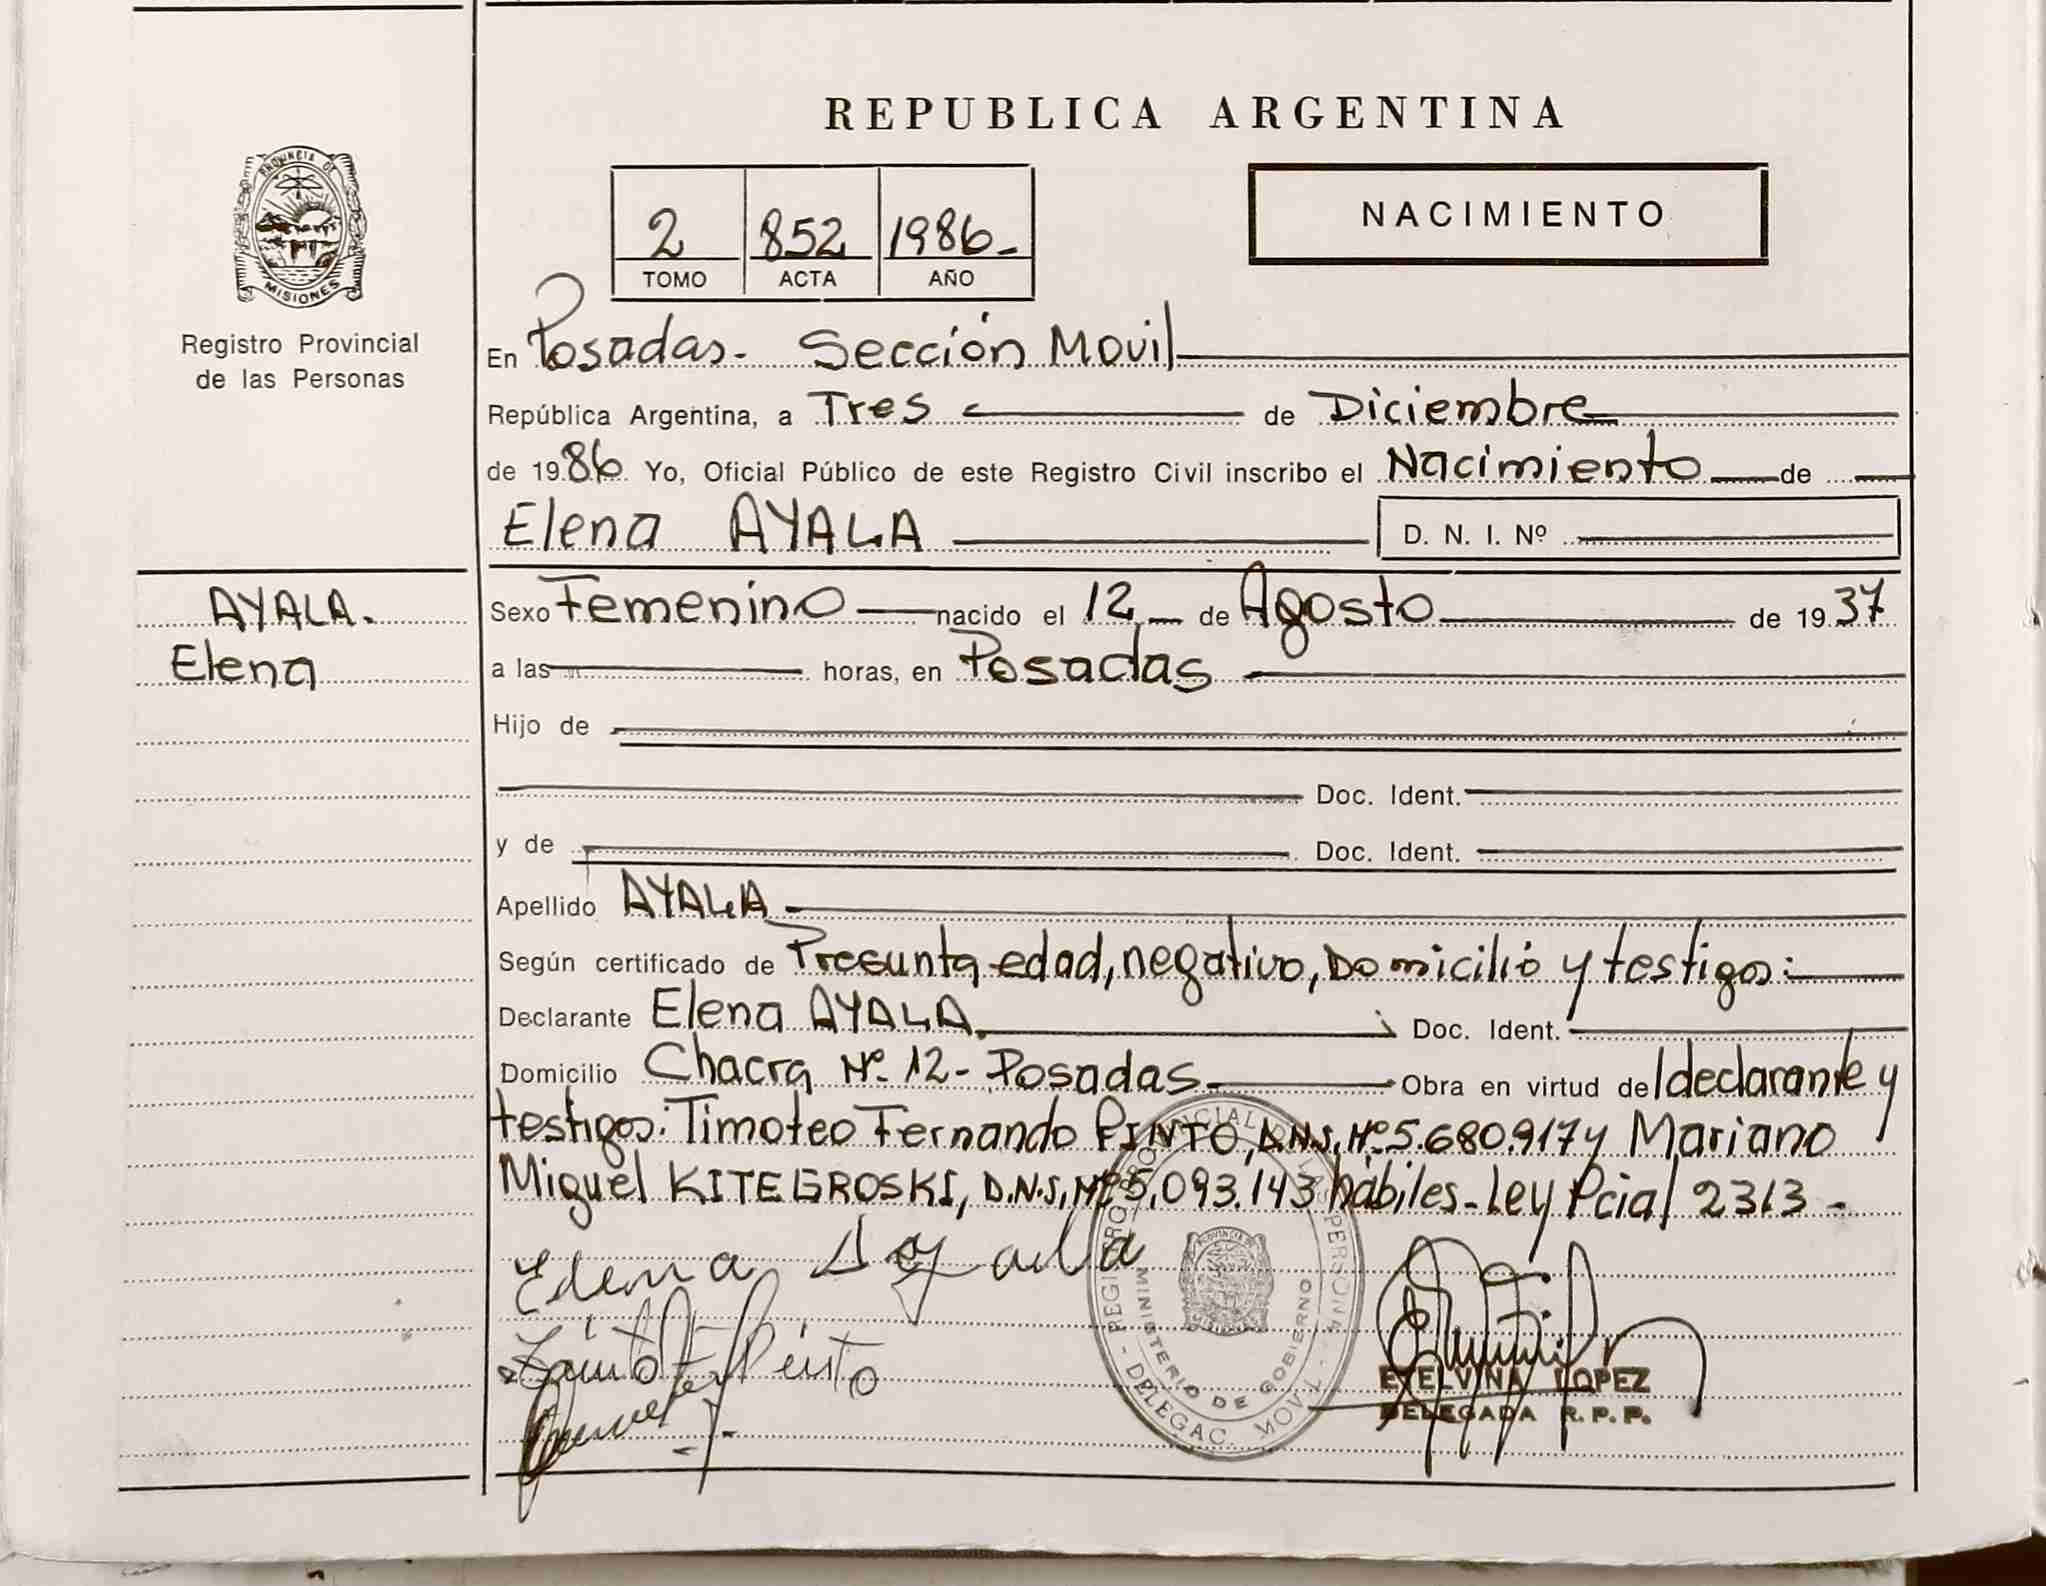 REPUBLICA ARGENTINA
PROVINCIA DE
MISIONES
Registro Provincial
de las Personas
2 852 1986-
TOMO ACTA AÑO
NACIMIENTO
En Posadas - Sección Movil
República Argentina, a Tres de Diciembre
de 1986 Yo, Oficial Público de este Registro Civil inscribo el Nacimiento de
Elena AYALA D. N. I. Nº
AYALA.
Elena
Sexo Femenino nacido el 12 de Agosto de 1937
a las horas, en Posadas
Hijo de
Doc. Ident.
y de Doc. Ident.
Apellido AYALA
Según certificado de Presunta edad, negativo, Domicilio y testigos:
Declarante Elena AYALA. Doc. Ident.
Domicilio Chacra Nº 12 - Posadas Obra en virtud del declarante y
testigos: Timoteo Fernando PINTO, D.N.I. Nº 5.680.917 y Mariano
Miguel KITEGROSKI, D.N.I, Nº 5.093.143 hábiles - Ley Pcial 2313 -
Elena Ayala
Pinto
REGISTRO PROVINCIAL DE LAS PERSONAS
MINISTERIO DE GOBIERNO
- DELEGAC. MOVIL -
ETELVINA LOPEZ
DELEGADA R. P. P.